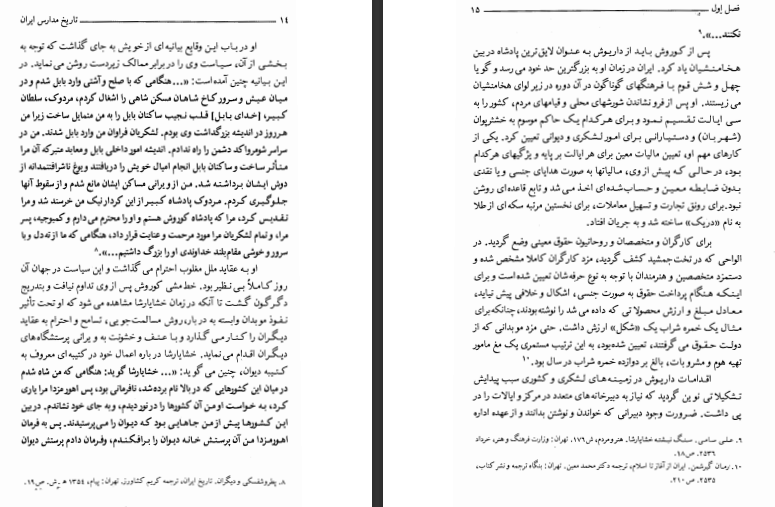 ۱۴ تاریخ مدارس ایران
او در باب این وقایع بیانیه‌ای از خویش به جای گذاشت که توجه به
بخشی از آن، سیاست وی را در برابر ممالک زیردست روشن می‌نماید. در
این بیانیه چنین آمده است: «...هنگامی که با صلح و آشتی وارد بابل شدم و در
میان عیش و سرور کاخ شاهان مسکن شاهی را اشغال کردم، مردوک، سلطان
کبیر، [خدای بابل] قلب نجیب ساکنان بابل را به من متمایل ساخت زیرا من
هر روز در اندیشه بزرگداشت وی بودم. لشکریان فراوان من وارد بابل شدند. من در
سراسر شومر و اکد دشمن را راه ندادم. اندیشه امور داخلی بابل و معابد متبرکه آن مرا
متأثر ساخت و ساکنان بابل انجام امیال خویش را دریافتند و یوغ ناشرافتمندانه از
دوش ایشان برداشته شد. من از ویرانی مساکن ایشان مانع شدم و از سقوط آنها
جلوگیری کردم. مردوک پادشاه کبیر از این کردار نیک من خرسند شد و مرا
تقدیس کرد، مرا که پادشاه کوروش هستم و او را محترم می‌دارم و کمبوجیه، پسر
مرا، و تمام لشکریان مرا مورد مرحمت و عنایت قرار داد، هنگامی که ما از ته دل و با
سرور و خوشی مقام بلند خداوندی او را بزرگ داشتیم...».۸
او به عقاید ملل مغلوب احترام می‌گذاشت و این سیاست در جهان آن
روز کاملاً بی‌نظیر بود. خط مشی کوروش پس از وی تداوم نیافت و بتدریج
دگرگون گشت تا آنکه در زمان خشایارشا مشاهده می‌شود که او تحت تأثیر
نفوذ موبدان وابسته به دربار، روش مسالمت‌جویی، تسامح و احترام به عقاید
دیگران را کنار می‌گذارد و با عنف و خشونت به ویرانی پرستشگاه‌های
دیگران اقدام می‌نماید. خشایارشا در باره اعمال خود در کتیبه‌ای معروف به
کتیبه دیوان، چنین می‌گوید: «... خشایارشا گوید: هنگامی که من شاه شدم
در میان این کشورهایی که در بالا نام برده شد، نافرمانی بود، پس اهورمزدا مرا یاری
کرد، به خواست او من آن کشورها را در نوردیدم، و به جای خود نشاندم. در بین
این کشورها پیش از من جاهایی بود که دیوان را می‌پرستیدند. پس به فرمان
اهورمزدا من آن پرستش خانه دیوان را برافکندم، و فرمان دادم پرستش دیوان
۸. پطروشفسکی و دیگران، تاریخ ایران، ترجمه کریم کشاورز، تهران: پیام، ۱۳۵۴ ه‍.ش. ص۱۹.
فصل اول ۱۵
نکنند...».۹
پس از کوروش باید از داریوش به عنوان لایق‌ترین پادشاه در بین
هخامنشیان یاد کرد. ایران در زمان او به بزرگترین حد خود می‌رسد و گویا
چهل و شش قوم با فرهنگهای گوناگون در آن دوره در زیر لوای هخامنشیان
می‌زیستند. او پس از فرو نشاندن شورشهای محلی و قیامهای مردم، کشور را به
سی ایالت تقسیم نمود و برای هر کدام یک حاکم موسوم به خشثرپوان
(شهربان) و دستیارانی برای امور لشکری و دیوانی تعیین کرد. یکی از
کارهای مهم او، تعیین مالیات معین برای هر ایالت بر پایه و یژگیهای هر کدام
بود، در حالی که پیش از وی، مالیاتها به صورت هدایای جنسی و یا نقدی
بدون ضابطه معین و حساب شده‌ای اخذ می‌شد و تابع قاعده‌ای روشن
نبود. برای رونق تجارت و تسهیل معاملات، برای نخستین مرتبه سکه‌ای از طلا
به نام «دریک» ساخته شد و به جریان افتاد.
برای کارگران و متخصصان و روحانیون حقوق معینی وضع گردید. در
الواحی که در تخت جمشید کشف گردید، مزد کارگران کاملا مشخص شده و
دستمزد متخصصین و هنرمندان با توجه به نوع حرفه‌شان تعیین شده است و برای
اینکه هنگام پرداخت حقوق به صورت جنسی، اشکال و خلافی پیش نیاید،
معادل مبلغ و ارزش محصولاتی که داده می‌شد را نوشته بودند، چنانکه برای
مثال یک خمره شراب یک «شکل» ارزش داشت. حتی مزد موبدانی که از
دولت حقوق می‌گرفتند، تعیین شده بود، به این ترتیب مستمری یک مغ مامور
تهیه هوم و مشروبات، بالغ بر دوازده خمره شراب در سال بود.۱۰
اقدامات داریوش در زمینه‌های لشکری و کشوری سبب پیدایش
تشکیلاتی نوین گردید که نیاز به دبیرخانه‌های متعدد در مرکز و ایالات را در
پی داشت. ضرورت وجود دبیرانی که خواندن و نوشتن بدانند و از عهده اداره
۹. علی سامی. سنگ نبشته خشایارشا. هنر و مردم، ش۱۷۶. تهران: وزارت فرهنگ و هنر، خرداد
۲۵۳۶. ص۱۸.
۱۰. رمان گیرشمن. ایران از آغاز تا اسلام، ترجمه دکتر محمد معین. تهران: بنگاه ترجمه و نشر کتاب،
۲۵۳۵. ص۲۱۰.